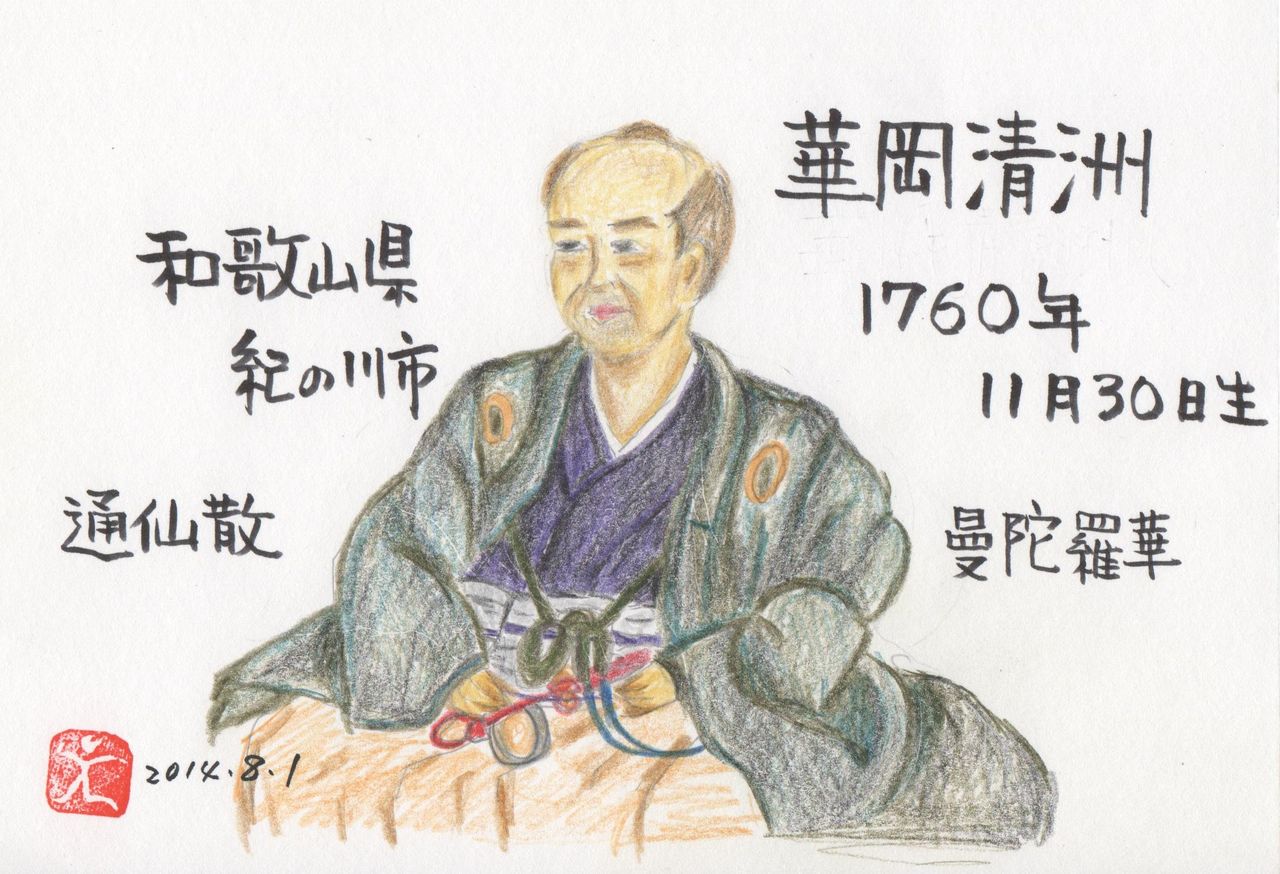 華岡清洲
1760年
11月30日生
和歌山県
紀の川市
通仙散
曼陀羅華
2014.8.1